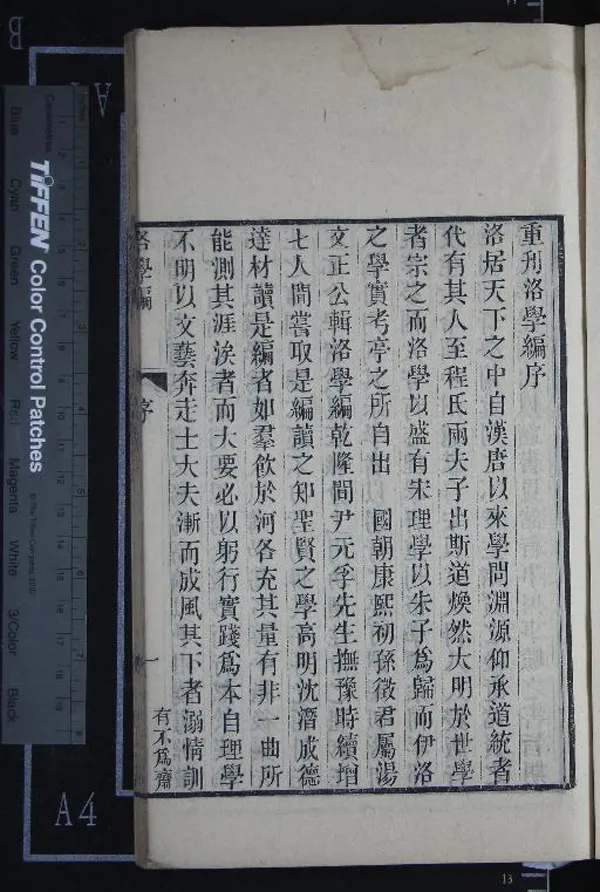 重刋洛學編序
洛居天下之中自漢唐以來學問淵源仰承道統者
代有其人至程氏兩夫子出斯道煥然大明於世學
者宗之而洛學以盛有宋理學以朱子爲歸而伊洛
之學實考亭之所自出　國朝康熙初孫徵君屬湯
文正公輯洛學編乾隆間尹元孚先生撫豫時續增
七人間嘗取是編讀之知聖賢之學高明沈潛成德
達材讀是編者如羣飲於河各充其量有非一曲所
能測其涯涘者而大要必以躬行實踐爲本自理學
不明以文藝奔走士大夫漸而成風其下者溺情訓
洛學編
序
一
有不爲齋
TIFFEN Color Control Patches
© The Tiffen Company, 2007
Centimetres
Blue
Cyan
Green
Yellow
Red
Magenta
White
3/Color
Black
A4
B
13